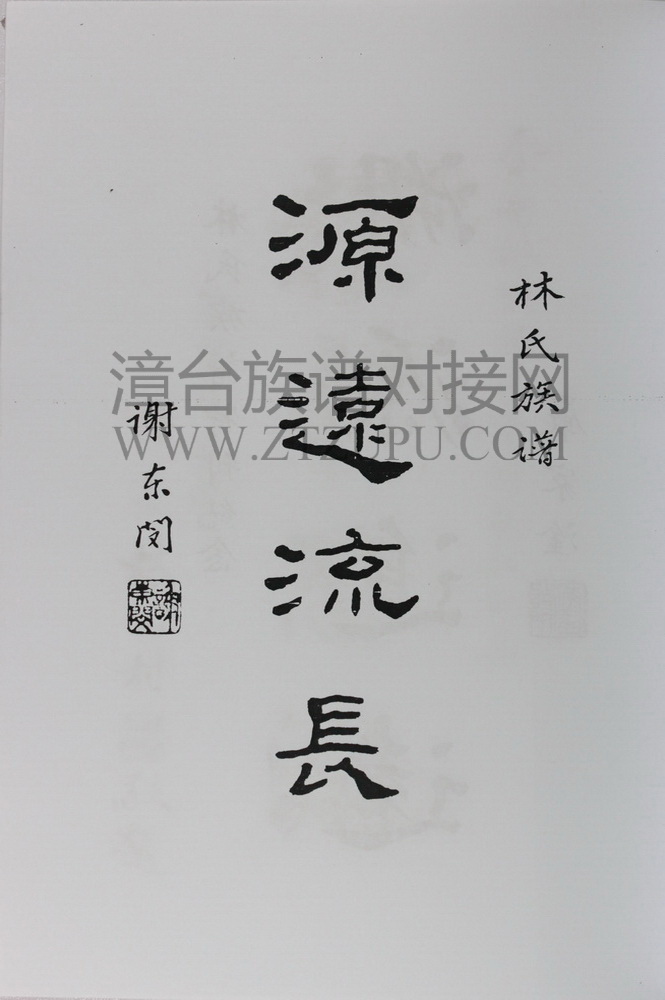 林氏族谱
源遠流長
谢东闵
漳台族谱对接网
WWW.ZTZUPU.COM